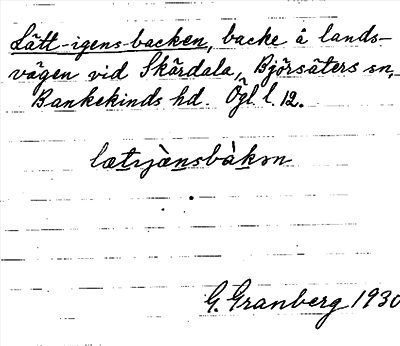 Lätt-igens-backen, backe å lands-
vägen vid Skärdala, Björsäters sn,
Bankekinds hd. Ögl l. 12.
lætıjænsbàkən
G. Granberg 1930